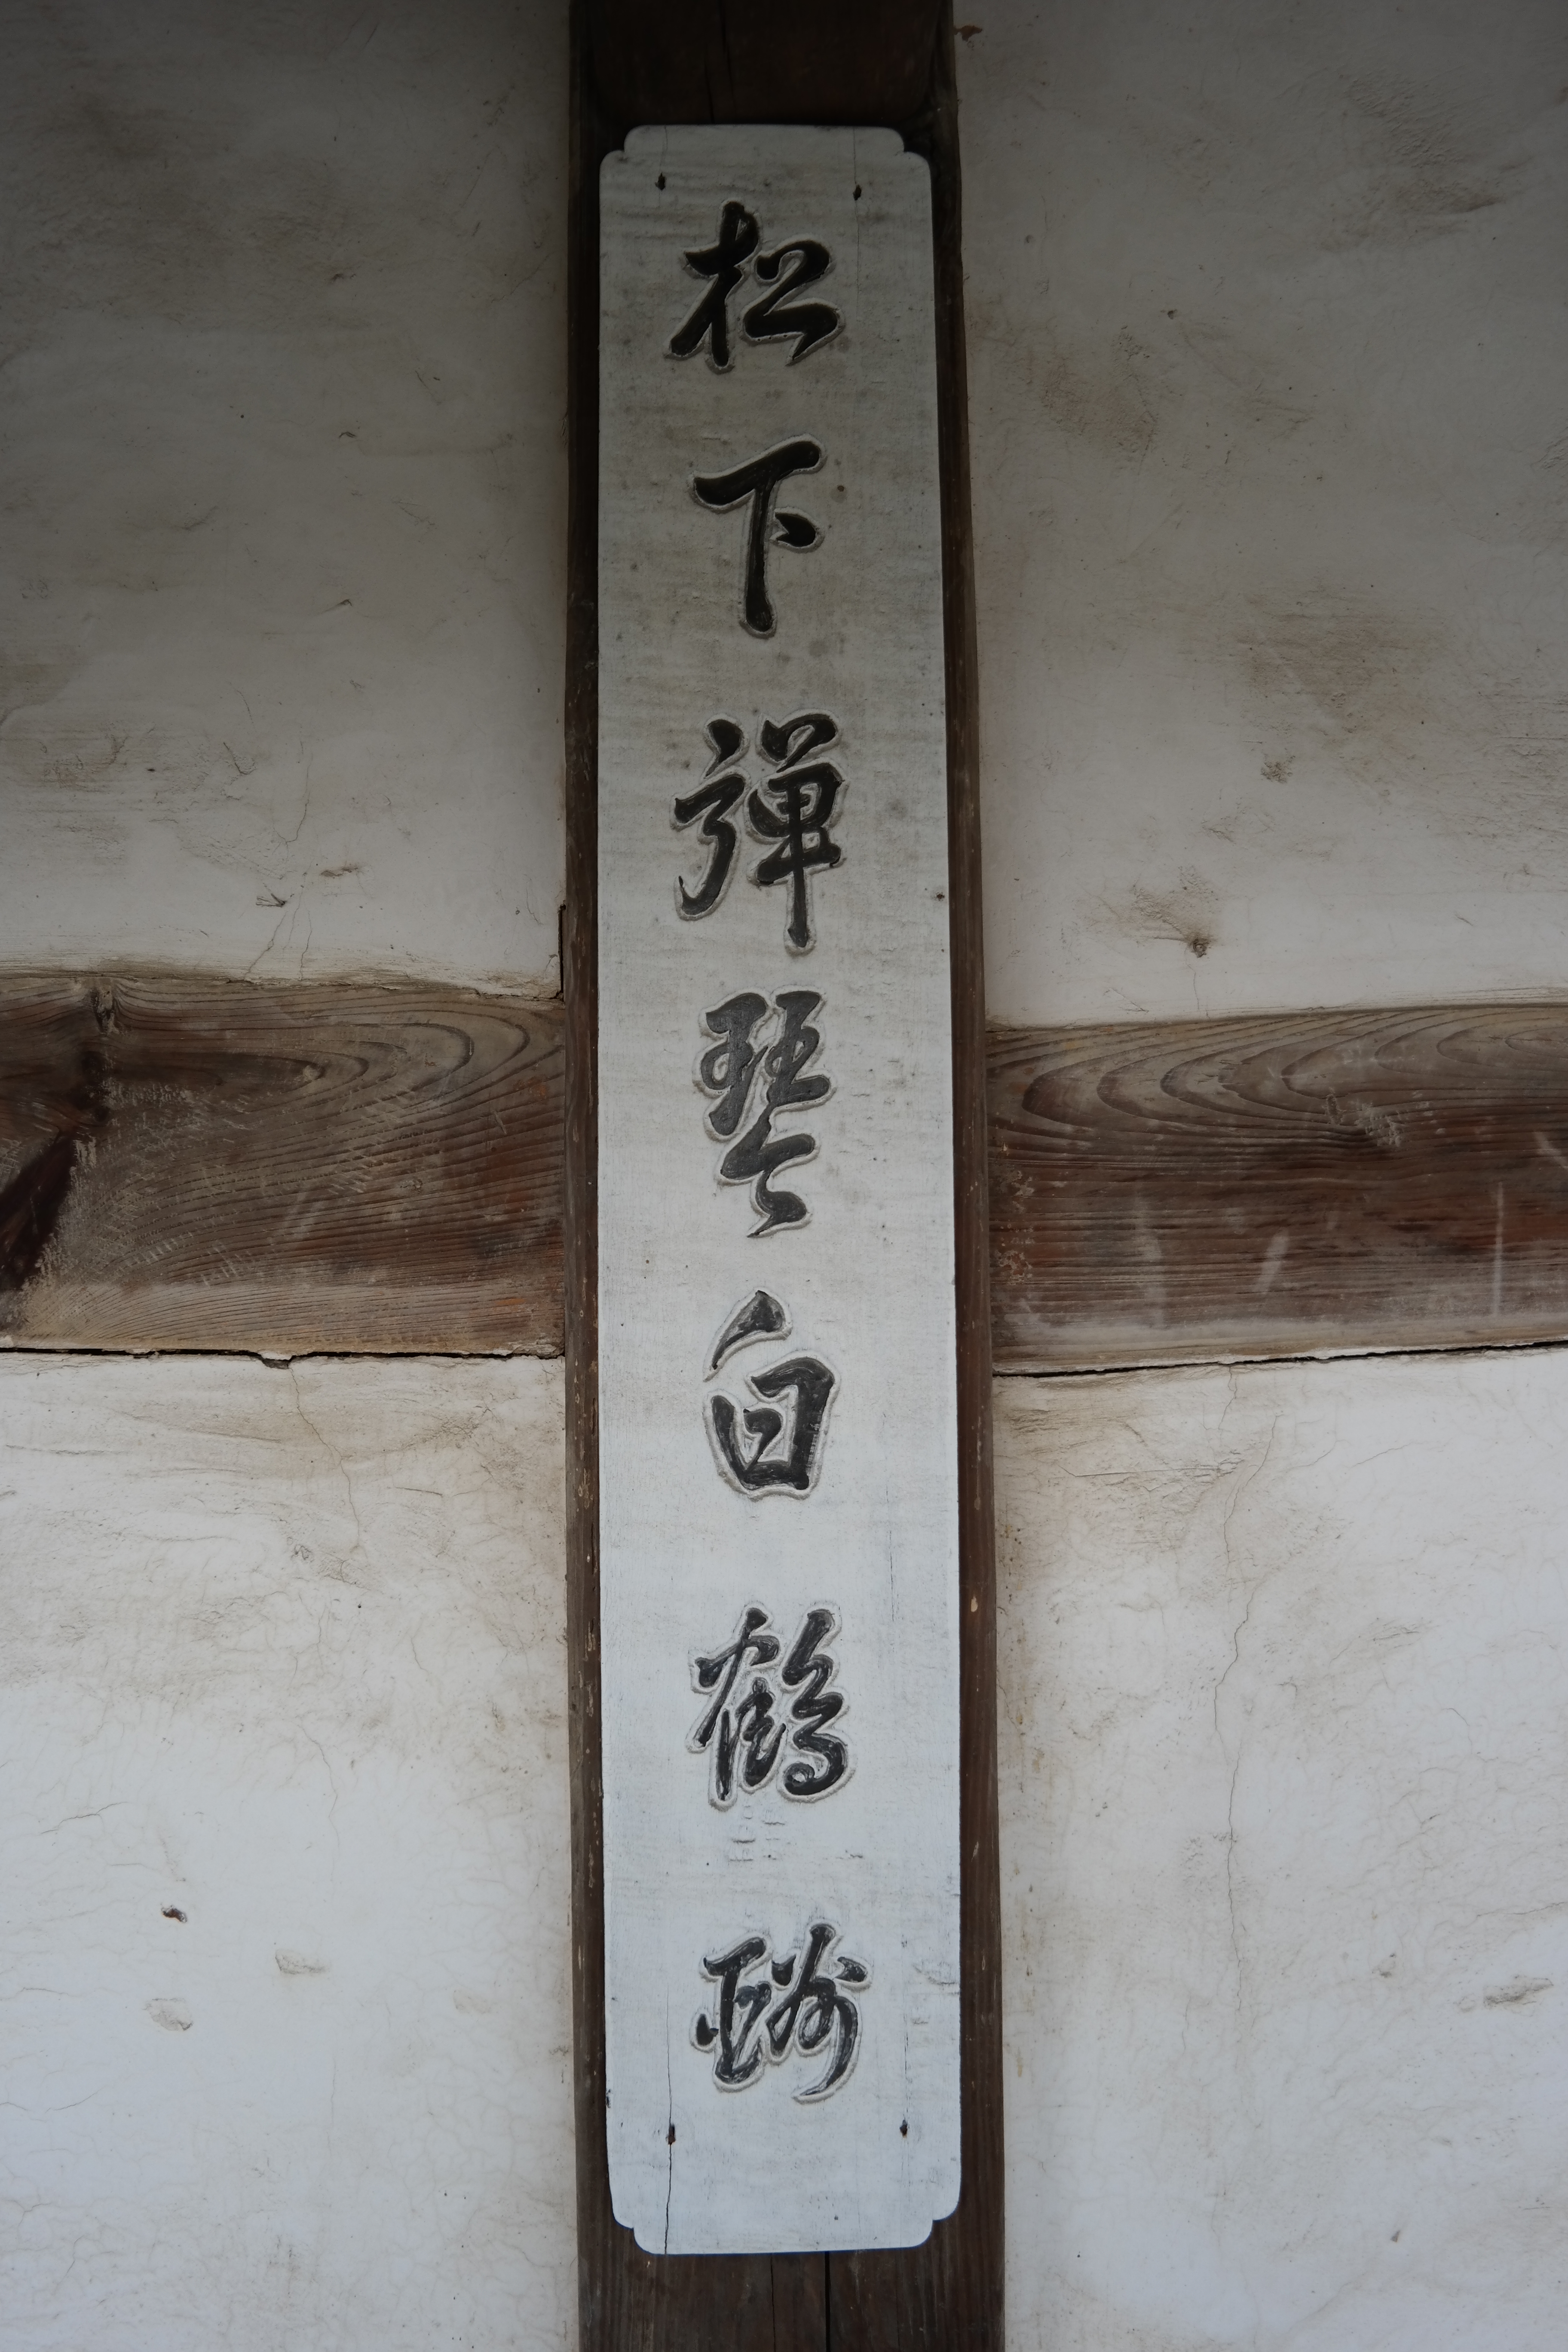 松下彈琴白鶴酬